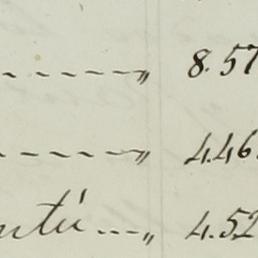 ----- „ 8.57
----- „ 4.46
ntú ... „ 4.52